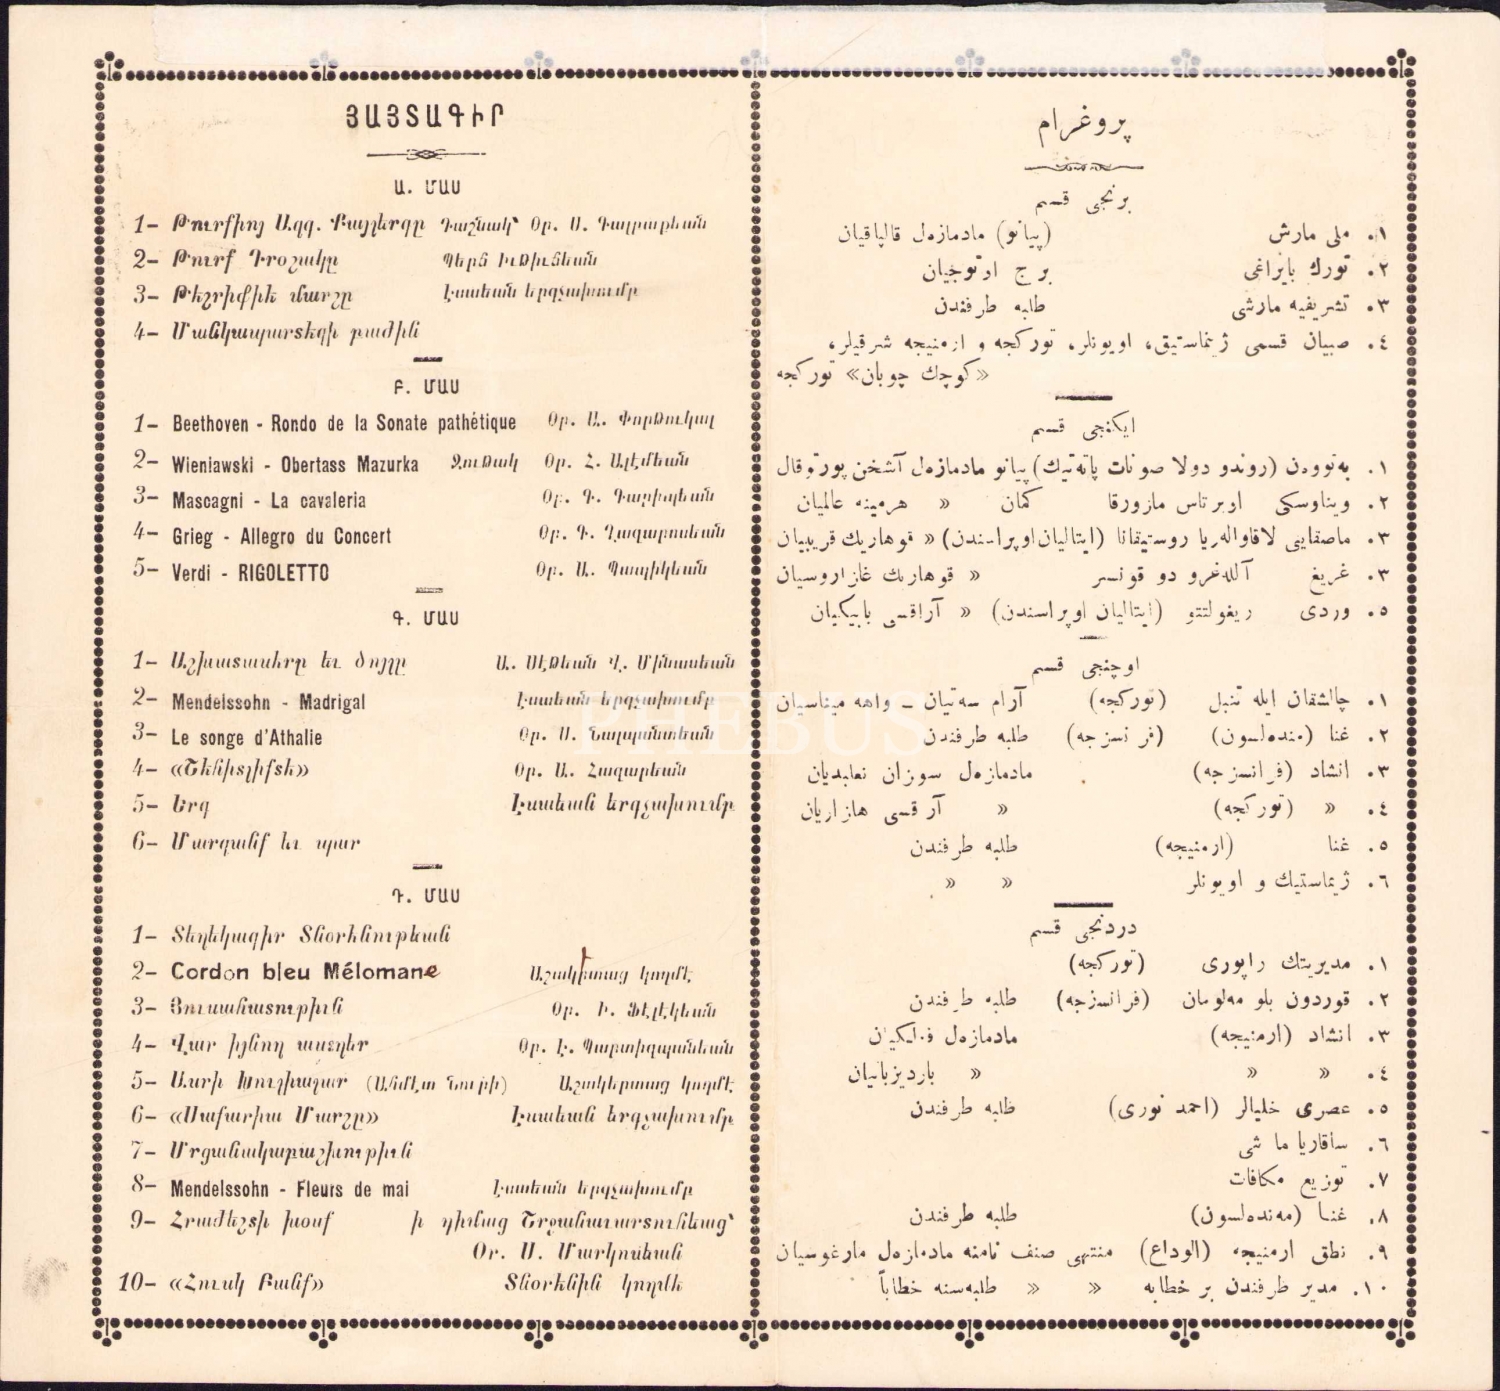 ՅԱՅՏԱԳԻՐ
Ա. ՄԱՍ
1- Թուրքիոյ Ազգ. Քայլերգը Դաշնակ՝ Օր. Ս. Գալբաքեան
2- Թուրք Դրօշակը
3- Թէշրիֆիէ մարշը Էսաեան երգչախումբ
4- Մանկապարտէզի բաժին
Բ. ՄԱՍ
1- Beethoven - Rondo de la Sonate pathétique Օր. Ա. Փորթուկալ
2- Wieniawski - Obertass Mazurka Ջութակ Օր. Հ. Ալէմեան
3- Mascagni - La cavaleria Օր. Գ. Ղարիպեան
4- Grieg - Allegro du Concert Օր. Գ. Ղազարոսեան
5- Verdi - RIGOLETTO Օր. Ա. Պապիկեան
Գ. ՄԱՍ
1- Աշխատասէրը եւ ծոյլը Ա. Սէթեան Վ. Մինասեան
2- Mendelssohn - Madrigal Էսաեան երգչախումբ
3- Le songe d'Athalie Օր. Ս. Նալպանտեան
4- Օր. Ա. Հազարեան
5- Երգ Էսաեան երգչախումբ
6- Մարզանք եւ պար
Դ. ՄԱՍ
1- Տեղեկագիր Տնօրէնութեան
2- Cordon bleu Mélomane Աշակերտաց կողմէ
3- Յուսահատութիւն Օր. Ի. Ֆէլէկեան
4- Վար իյնող աստղեր Օր. Է. Պարտիզպանեան
5- Ասրի Խուլիալար (Ահմէտ Նուրի) Աշակերտաց կողմէ
6- «Սաքարիա Մարշը» Էսաեան երգչախումբ
7- Մրցանակաբաշխութիւն
8- Mendelssohn - Fleurs de mai Էսաեան երգչախումբ
9- Հրաժեշտի խօսք ի դիմաց Շրջանաւարտուհեաց՝
Օր. Ս. Մարկոսեան
10- «Հուսկ Բանք» Տնօրէնին կողմէ
پروغرام
برنجی قسم
١. ملی مارش (پیانو) مادمازەل قالپاقیان
٢. تورك بایراغی
٣. تشریفیه مارشی طلبه طرفندن
٤. صبیان قسمی ژیمناستیق، اویونلر، تورکجه و ارمنیجه شرقیلر،
«کوچك چوبان» تورکجه
ایکنجی قسم
١. بەتووەن (روندو دولا صونات پاتەتیك) پیانو مادمازەل آشخن پورتوقال
٢. ویناوسکی اوبرتاس مازورقا کمان » هرمینه عالمیان
٣. ماصقاینی لاقاوالەریا روستیقانا (ایتالیان اوپراسندن) » قوهاریك قریبیان
٣. غریغ آللەغرو دو قونسر » قوهاریك غازاروسیان
٥. وردی ریغولتتو (ایتالیان اوپراسندن) » آراقسی بابیکیان
اوچنجی قسم
١. چالشقان ایله تنبل (تورکجه) آرام سەتیان ـ واهه میناسیان
٢. غنا (مندەلسون) (فرانسزجه) طلبه طرفندن
٣. انشاد (فرانسزجه) مادمازەل سوزان نعلبندیان
٤. » (تورکجه) » آرقسی هازاریان
٥. غنا (ارمنیجه) طلبه طرفندن
٦. ژیمناستیك و اویونلر » »
دردنجی قسم
١. مدیریتك راپوری (تورکجه)
٢. قوردون بلو مەلومان (فرانسزجه) طلبه طرفندن
٣. انشاد (ارمنیجه) مادمازەل فەلکیان
٤. » » » باردیزبانیان
٥. عصری خلیالر (احمد نوری) طلبه طرفندن
٦. ساقاریا مارشی
٧. توزیع مکافات
٨. غنا (مەندەلسون) طلبه طرفندن
٩. نطق ارمنیجه (الوداع) منتهی صنف نامنه مادمازەل مارغوسیان
١٠. مدیر طرفندن بر خطابه » » طلبەسنه خطاباً
PHEBUS